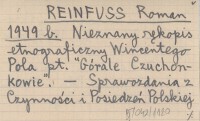 REINFUSS Roman
1949 b. Nieznany rękopis
etnograficzny Wincentego
Pola pt. "Górale Czuchon-
kowie". — Sprawozdania z
Czynności i Posiedzeń Polskiej